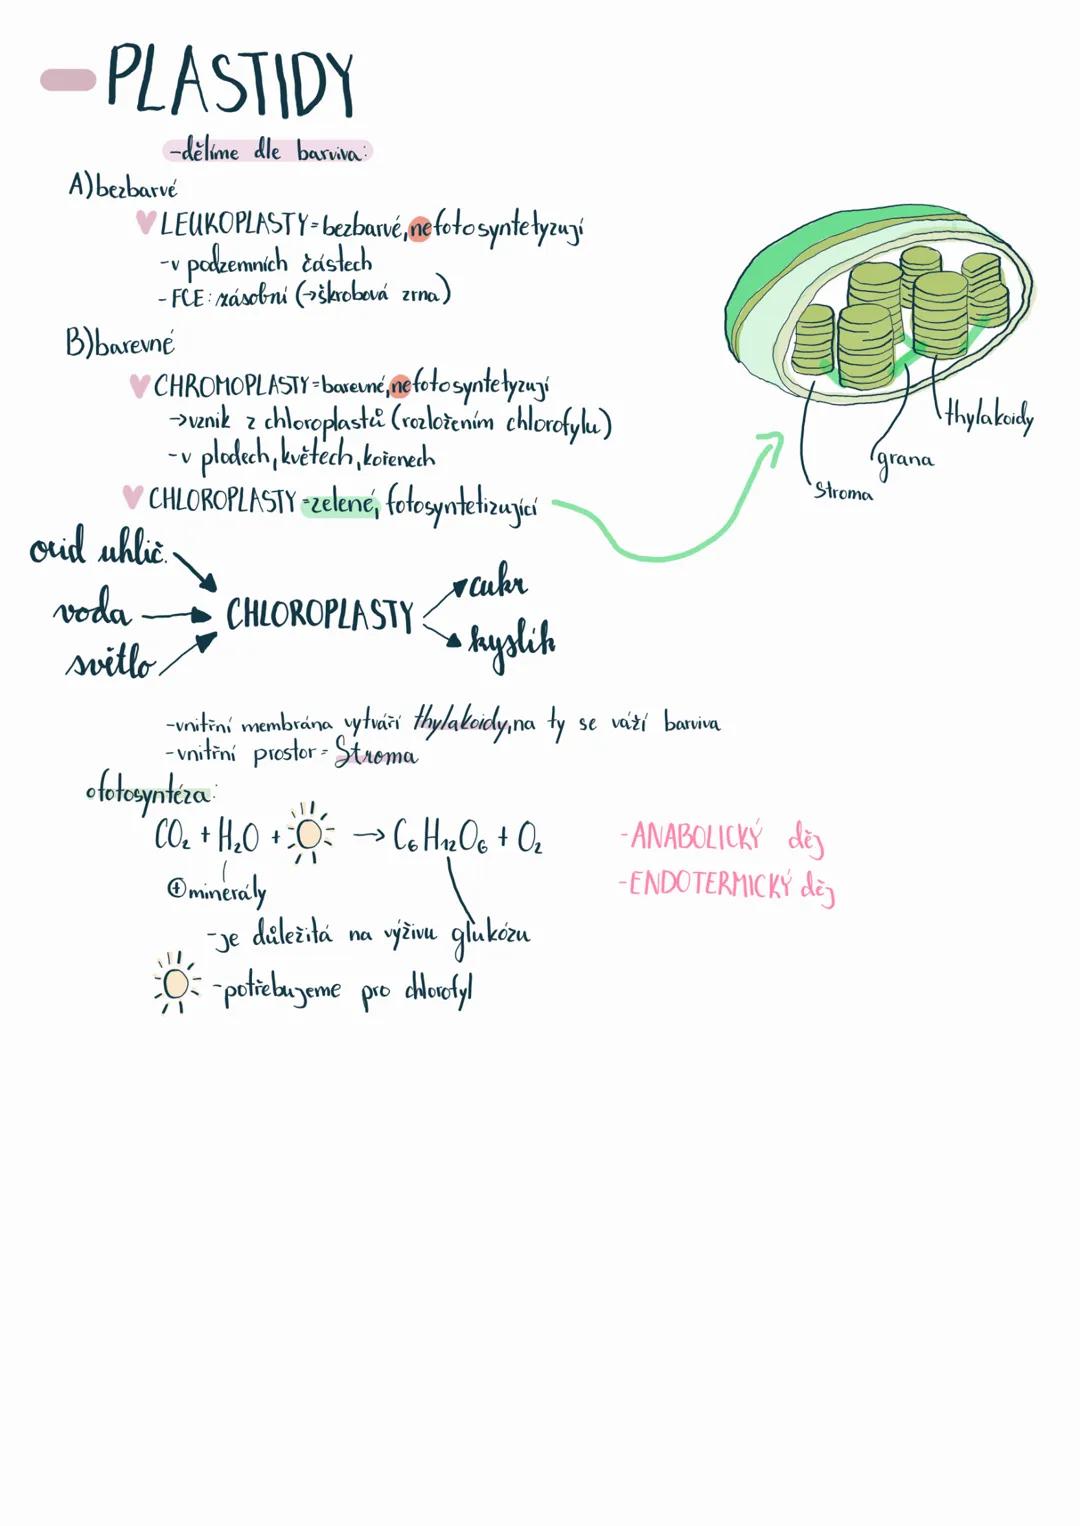 - PLASTIDY
-dělíme dle barviva:
A) bezbarvé
LEUKOPLASTY = bezbarvé, nefotosyntetyzují
-v podzemních částech
- FCE: zásobní (→škrobová zrna)
B) barevné
CHROMOPLASTY = barevné, nefotosyntetyzují
→vznik z chloroplastů (rozložením chlorofylu)
-v plodech, květech, kořenech
CHLOROPLASTY = zelené, fotosyntetizující
thylakoidy
grana
Stroma
oxid uhlič.
voda
světlo
CHLOROPLASTY
cukr
kyslík
-vnitřní membrána vytváří thylakoidy, na ty se váží barviva
-vnitřní prostor = Stroma
fotosyntéza:
CO₂ + H₂O + → C₆H₁₂O₆ + O₂
⊕ minerály
-je důležitá na výživu glukózu
-potřebujeme pro chlorofyl
-ANABOLICKÝ děj
-ENDOTERMICKÝ děj